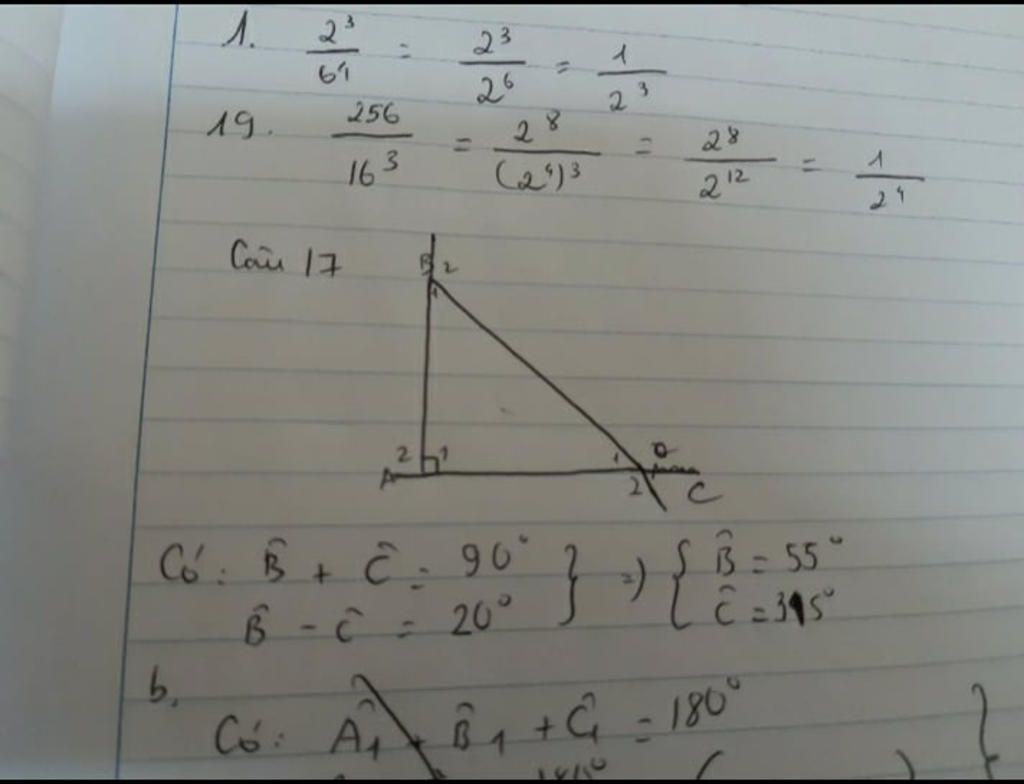 1. 2³/64 = 2³/2⁶ = 1/2³
19. 256/16³ = 2⁸/(2⁴)³ = 2⁸/2¹² = 1/2⁴
Câu 17
B 2
1
2 1 1
A 2 C
Có: B̂ + Ĉ = 90° } => { B̂ = 55°
B̂ - Ĉ = 20° Ĉ = 35°
b,
Có: Â₁ + B̂₁ + Ĉ₁ = 180° }